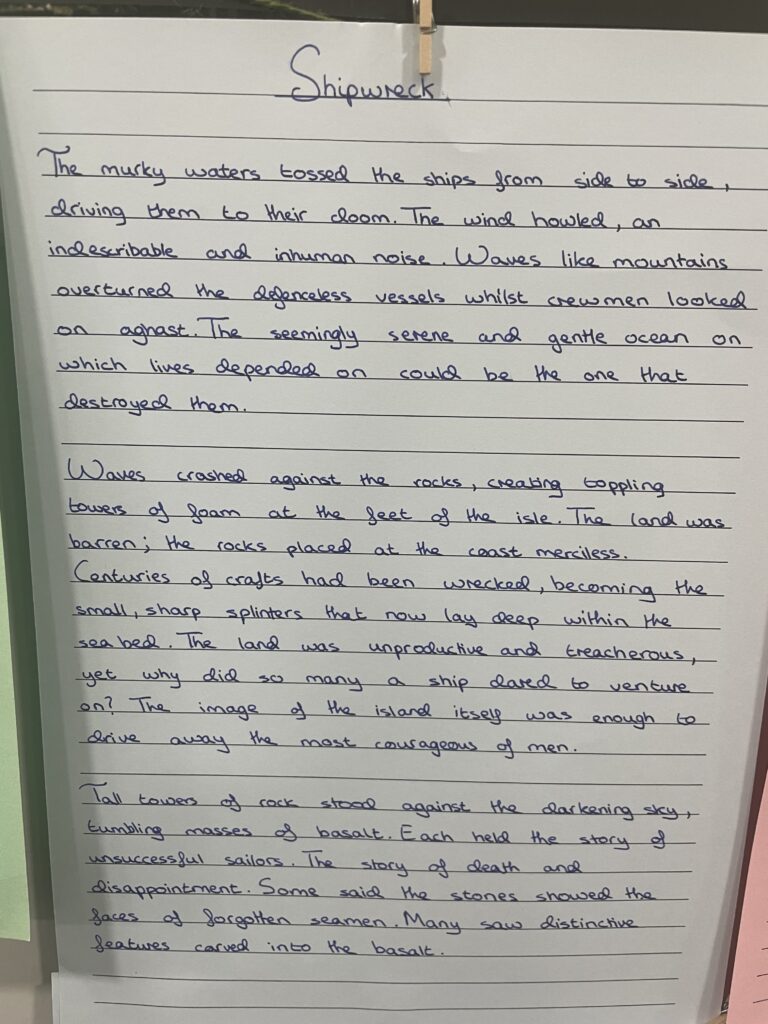 Shipwreck.
The murky waters tossed the ships from side to side,
driving them to their doom. The wind howled, an
indescribable and inhuman noise. Waves like mountains
overturned the defenceless vessels whilst crewmen looked
on aghast. The seemingly serene and gentle ocean on
which lives depended on could be the one that
destroyed them.
Waves crashed against the rocks, creating toppling
towers of foam at the feet of the isle. The land was
barren; the rocks placed at the coast merciless.
Centuries of crafts had been wrecked, becoming the
small, sharp splinters that now lay deep within the
sea bed. The land was unproductive and treacherous,
yet why did so many a ship dared to venture
on? The image of the island itself was enough to
drive away the most courageous of men.
Tall towers of rock stood against the darkening sky,
tumbling masses of basalt. Each held the story of
unsuccessful sailors. The story of death and
disappointment. Some said the stones showed the
faces of forgotten seamen. Many saw distinctive
features carved into the basalt.